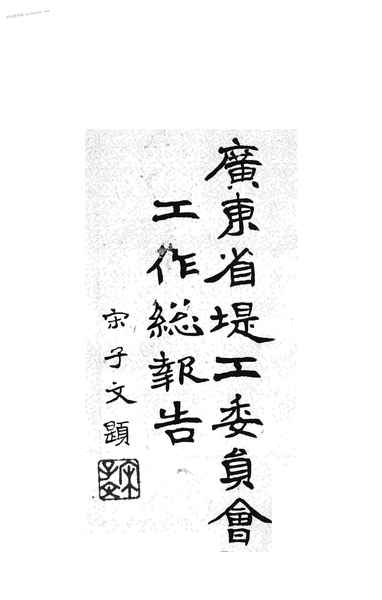 廣東省堤工委員會
工作總報告
宋子文題